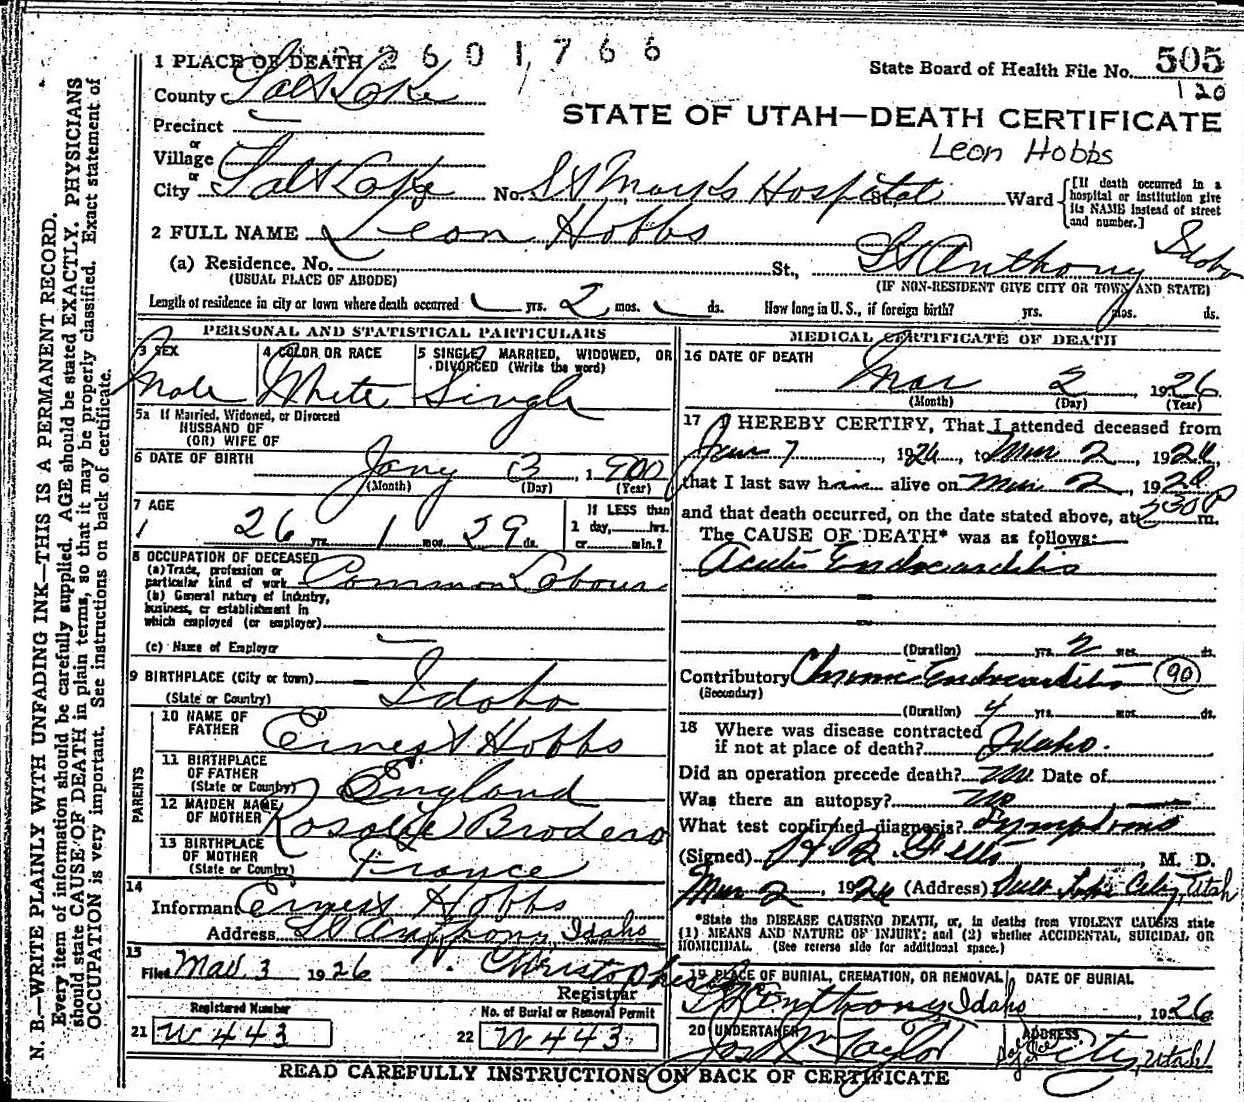 1 PLACE OF DEATH 2601766
State Board of Health File No. 505
120
County Salt Lake
STATE OF UTAH—DEATH CERTIFICATE
Precinct
Leon Hobbs
or
Village
or
City Salt Lake No. St Mary's Hospital St., Ward [If death occurred in a hospital or institution give its NAME instead of street and number.]
2 FULL NAME Leon Hobbs
(a) Residence. No. St., St Anthony Idaho
(USUAL PLACE OF ABODE) (IF NON-RESIDENT GIVE CITY OR TOWN AND STATE)
Length of residence in city or town where death occurred yrs. 2 mos. ds. How long in U. S., if foreign birth? yrs. mos. ds.
PERSONAL AND STATISTICAL PARTICULARS
3 SEX
Male
4 COLOR OR RACE
White
5 SINGLE, MARRIED, WIDOWED, OR DIVORCED (Write the word)
Single
5a If Married, Widowed, or Divorced
HUSBAND OF
(OR) WIFE OF
6 DATE OF BIRTH Jany 3 1900
(Month) (Day) (Year)
7 AGE
26 yrs. 1 mos. 29 ds.
If LESS than
1 day, hrs.
or min.?
8 OCCUPATION OF DECEASED
(a) Trade, profession or
particular kind of work Common Labour
(b) General nature of Industry,
business, or establishment in
which employed (or employer)
(c) Name of Employer
9 BIRTHPLACE (City or town)
(State or Country) Idaho
PARENTS
10 NAME OF
FATHER Ernest Hobbs
11 BIRTHPLACE
OF FATHER
(State or Country) England
12 MAIDEN NAME
OF MOTHER Rosalie Brodero
13 BIRTHPLACE
OF MOTHER
(State or Country) France
14
Informant Ernest Hobbs
Address St Anthony Idaho
15
Filed Mar 3 1926
Registrar
Registered Number
21 W 443
No. of Burial or Removal Permit
22 W 443
MEDICAL CERTIFICATE OF DEATH
16 DATE OF DEATH
Mar 2 1926
(Month) (Day) (Year)
17 I HEREBY CERTIFY, That I attended deceased from
Jan 7, 1926, to Mar 2, 1926,
that I last saw him alive on Mar 2, 1926
and that death occurred, on the date stated above, at 530 P m.
The CAUSE OF DEATH* was as follows:
Acute Endocarditis
(Duration) yrs. 2 mos. ds.
Contributory Chronic Endocarditis (90)
(Secondary)
(Duration) 4 yrs. mos. ds.
18 Where was disease contracted
if not at place of death? Idaho.
Did an operation precede death? No. Date of
Was there an autopsy? No
What test confirmed diagnosis? Symptoms
(Signed) , M. D.
Mar 2, 1926 (Address) Salt Lake City, Utah
*State the DISEASE CAUSING DEATH, or, in deaths from VIOLENT CAUSES state
(1) MEANS AND NATURE OF INJURY; and (2) whether ACCIDENTAL, SUICIDAL OR
HOMICIDAL. (See reverse side for additional space.)
19 PLACE OF BURIAL, CREMATION, OR REMOVAL DATE OF BURIAL
St Anthony Idaho , 1926
20 UNDERTAKER ADDRESS
Jos Wm Taylor City, Utah
READ CAREFULLY INSTRUCTIONS ON BACK OF CERTIFICATE
N. B.—WRITE PLAINLY WITH UNFADING INK—THIS IS A PERMANENT RECORD.
Every item of information should be carefully supplied. AGE should be stated EXACTLY. PHYSICIANS
should state CAUSE OF DEATH in plain terms, so that it may be properly classified. Exact statement of
OCCUPATION is very important. See instructions on back of certificate.